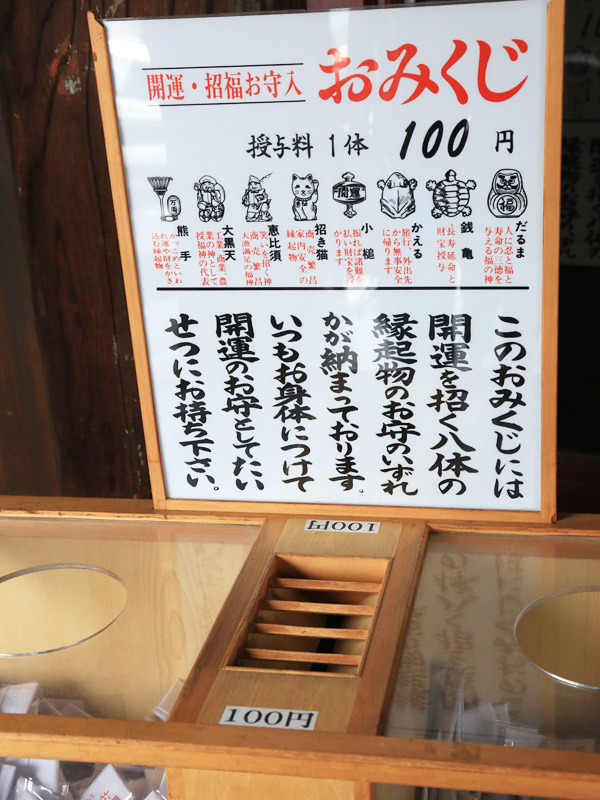 開運・招福お守入
おみくじ
授与料 1体 100 円
だるま
人に忍と福と
寿命の三徳を
与える福の神
銭亀
長寿延命と
財宝授与
かえる
旅行、外出先
から無事安全
に帰ります
開運
小槌
振れば諸難を
払い財宝を授
かります
招き猫
商売繁昌
家内安全の
縁起物
恵比須
笑いを招く神
商売繁昌
大漁満足の福神
大黒天
工業、商業、農
業の神として
授福神の代表
熊手
かっこめといわ
れ運や財をかき
込む縁起物
このおみくじには
開運を招く八体の
縁起物のお守のいずれ
かが納まっております。
いつもお身体につけて
開運のお守としてたい
せつにお持ち下さい。
100円
100円